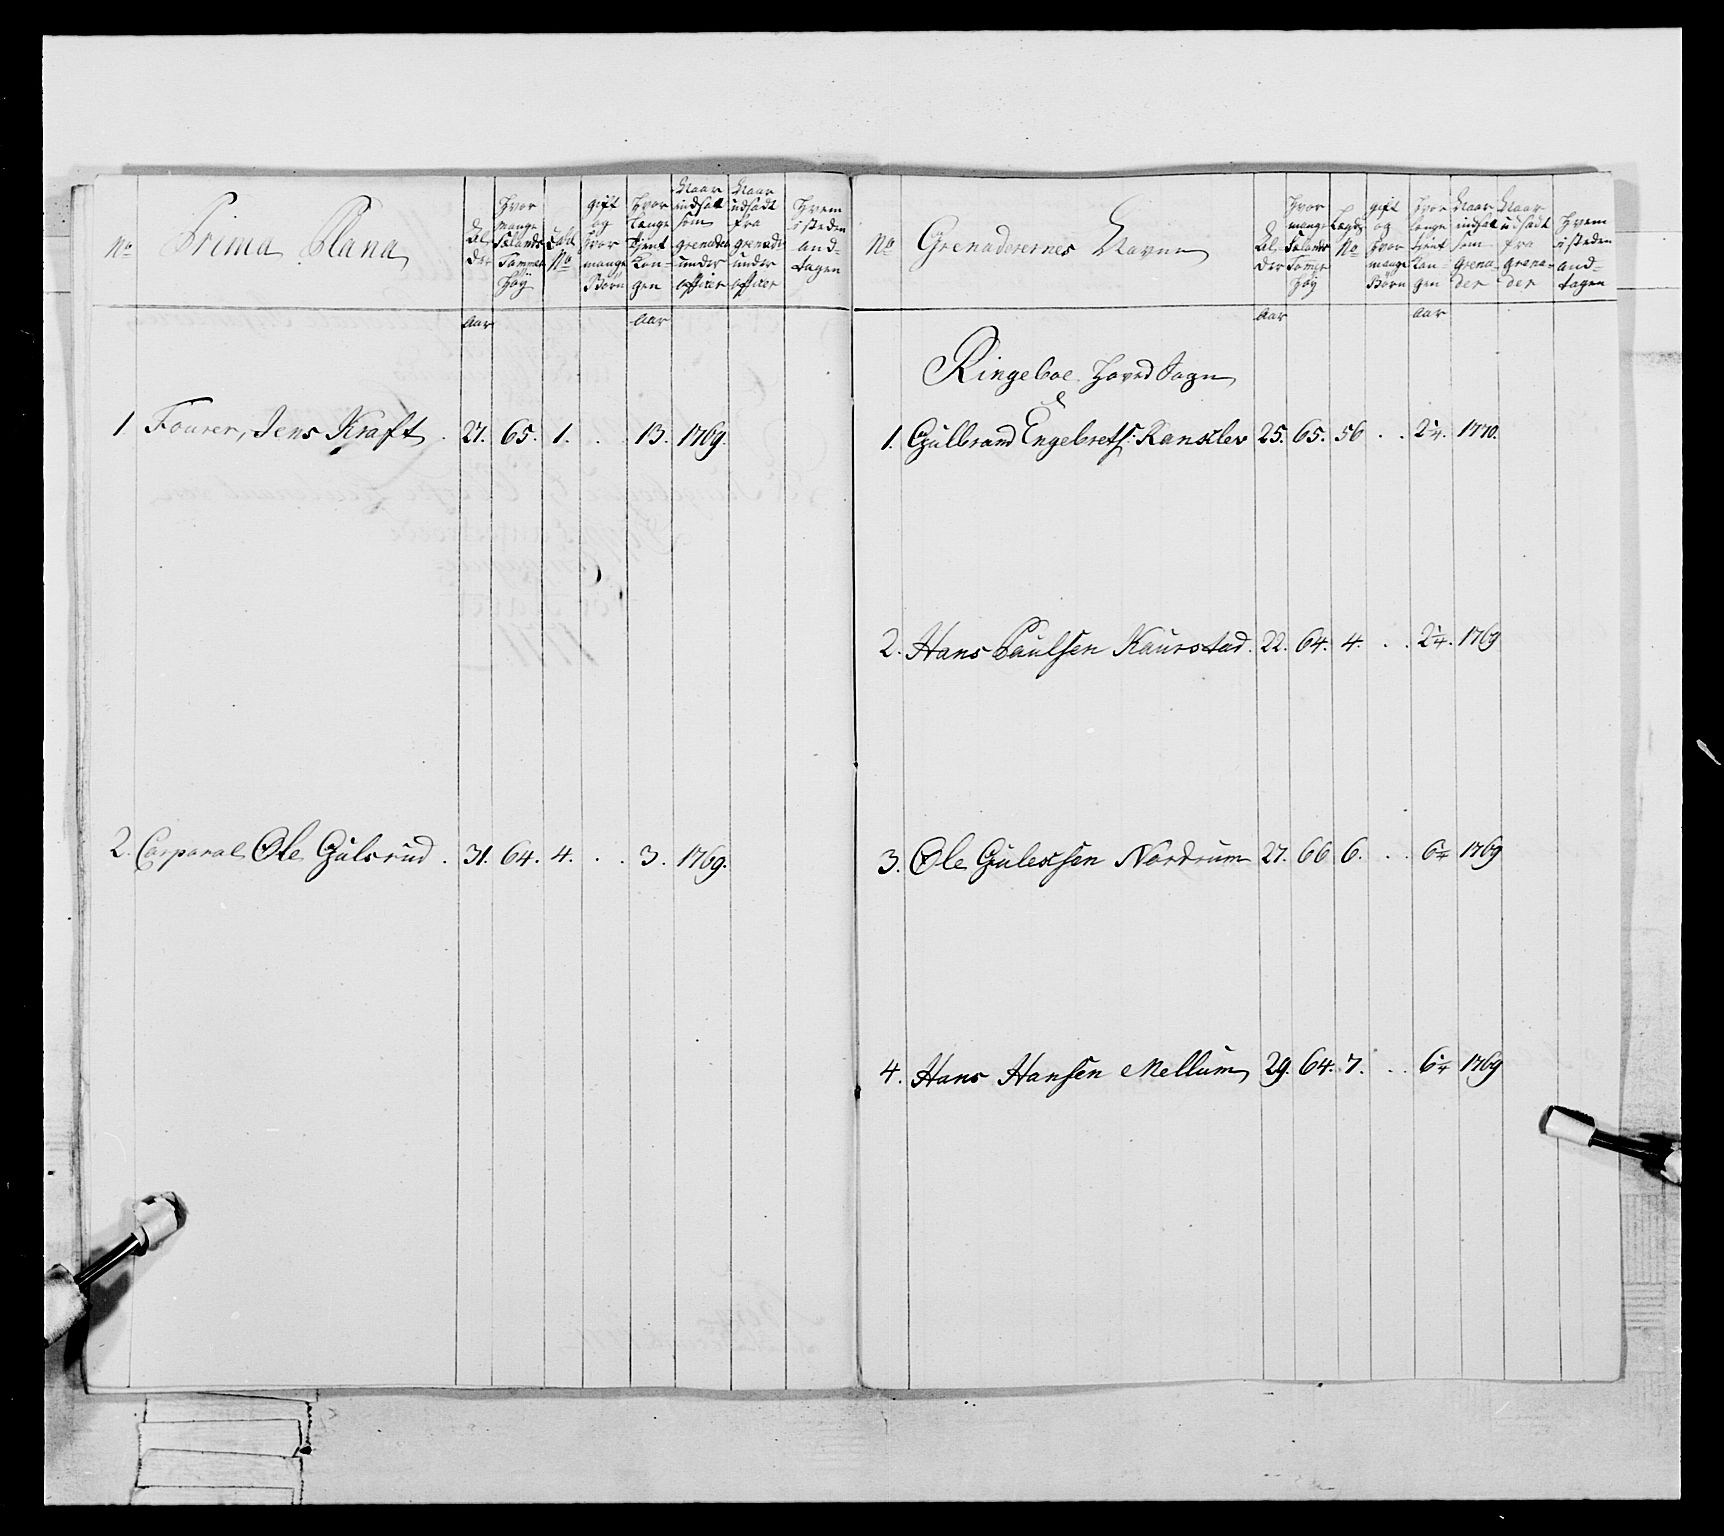 No Prima Plana
Al
der
Hvor
mange
Sælands
Tommer
Høy
No
gift
og
Hvor
mange
Børn
Hvor
Længe
tient
Kon-
gen
Naar
indsatt
som
grenader
under
officer
Naar
udsadt
fra
grenader
under
officer
Hvem
i steden
and-
tagen
Aar Aar
1 Fourer, Jens Kraft . 27. 65. 1. . . 13. 1769.
2. Corporal Ole Gulsrud . 31. 64. 4. . . 3. 1769.
No Grenaderernes Navne
Al
der
Hvor
mange
Sælands
Tomer
Høy
Lægds
No
gift
og
Hvor
mange
Børn
Hvor
Længe
tient
Kon-
gen
Naar
indsat
som
Grena-
der
Naar
udsadt
fra
Grena-
der
Hvem
i steden
and-
tagen
Aar Aar
Ringeboe Hoved Sogn
1. Gulbrand Engebretss: Randklev 25. 65. 56 . . 2¼. 1770.
2. Hans Paulsen Kaurstad . 22. 64. 4. . . 2¼. 1769
3. Ole Gulexsen Nordrum 27. 66 6. . . 6¼ 1769
4. Hans Hansen Mellum 29. 64. 7. . . 6¼ 1769